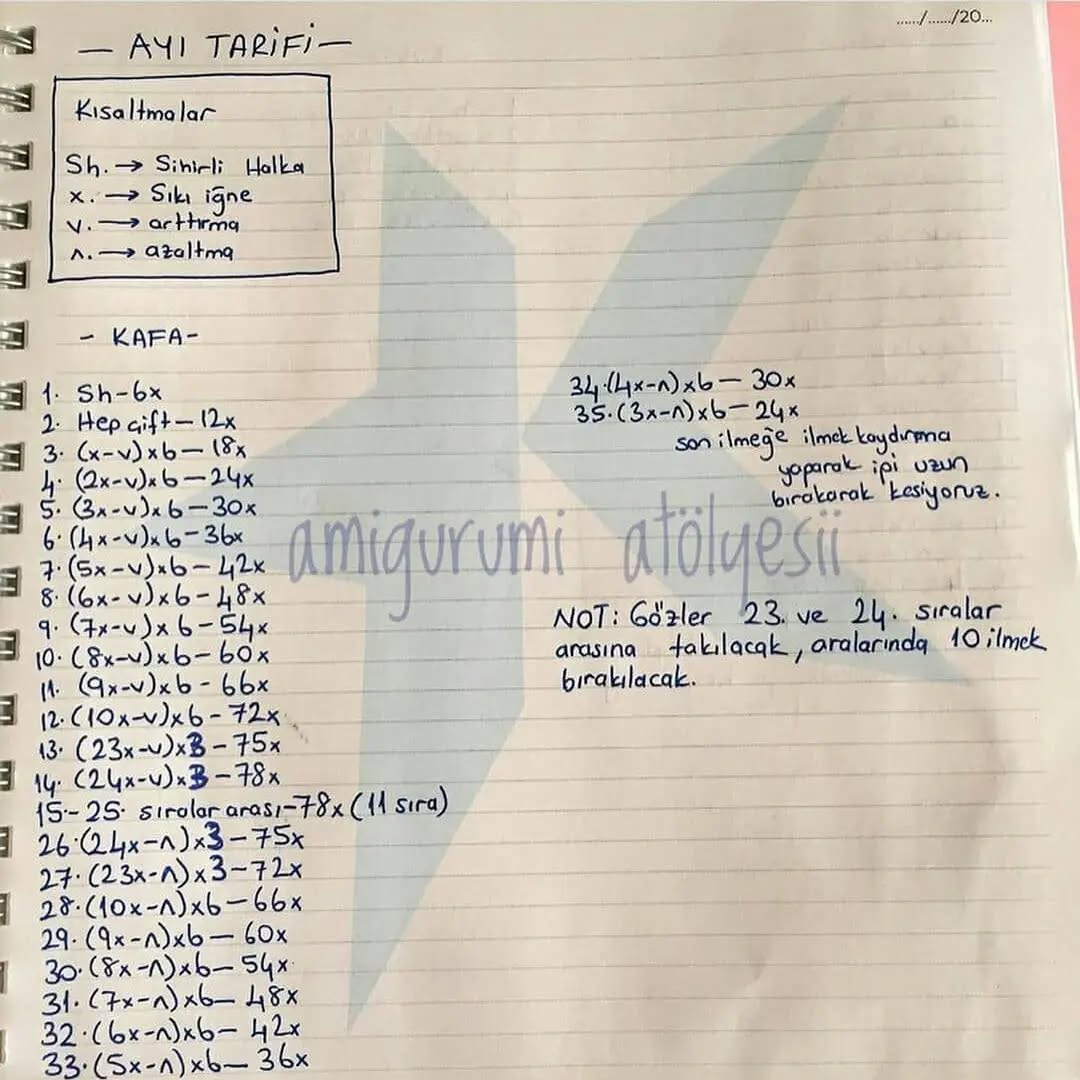 ....../....../20...
— AYI TARİFİ —
Kısaltmalar
Sh. → Sihirli Halka
x. → Sıkı iğne
v. → arttırma
ʌ. → azaltma
- KAFA -
1. Sh-6x
2. Hep çift - 12x
3. (x-v)x6 - 18x
4. (2x-v)x6 - 24x
5. (3x-v)x6 - 30x
6. (4x-v)x6 - 36x
7. (5x-v)x6 - 42x
8. (6x-v)x6 - 48x
9. (7x-v)x6 - 54x
10. (8x-v)x6 - 60x
11. (9x-v)x6 - 66x
12. (10x-v)x6 - 72x
13. (23x-v)x3 - 75x
14. (24x-v)x3 - 78x
15.-25. sıralar arası-78x (11 sıra)
26. (24x-ʌ)x3 - 75x
27. (23x-ʌ)x3 - 72x
28. (10x-ʌ)x6 - 66x
29. (9x-ʌ)x6 - 60x
30. (8x-ʌ)x6 - 54x
31. (7x-ʌ)x6 - 48x
32. (6x-ʌ)x6 - 42x
33. (5x-ʌ)x6 - 36x
34. (4x-ʌ)x6 - 30x
35. (3x-ʌ)x6 - 24x
son ilmeğe ilmek kaydırma
yaparak ipi uzun
bırakarak kesiyoruz.
NOT: Gözler 23. ve 24. sıralar
arasına takılacak, aralarında 10 ilmek
bırakılacak.
amigurumi atölyesii